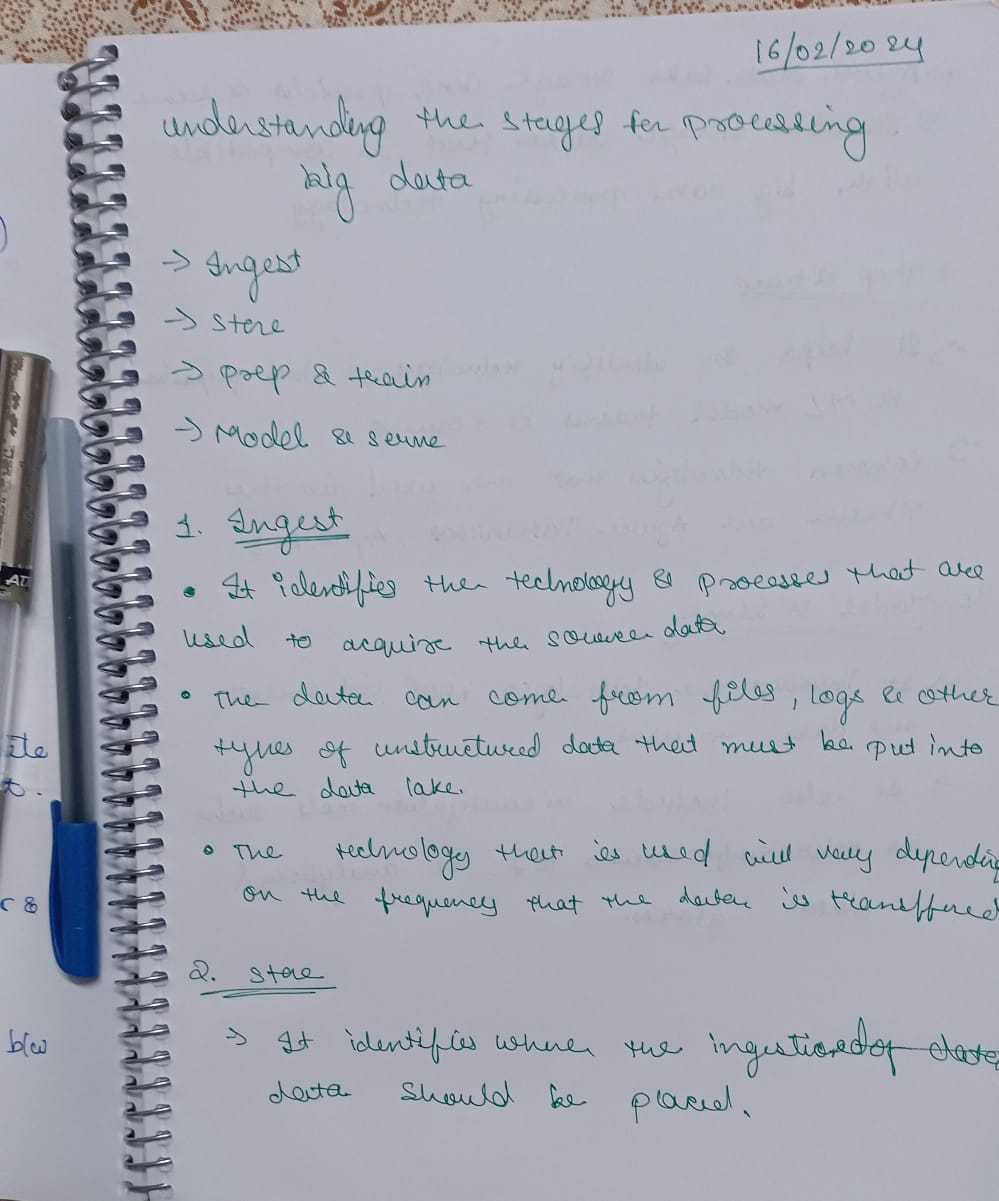 16/02/2024
understanding the stages for processing
big data
→ Ingest
→ store
→ prep & train
→ Model & serve
1. Ingest
• It identifies the technology & processes that are
used to acquire the source data
• The data can come from files, logs & other
types of unstructured data that must be put into
the data lake.
• The technology that is used will vary depending
on the frequency that the data is transffered
2. store
→ It identifies where the ingestioned of data
data should be placed.
ite
t.
c &
b/w
AD